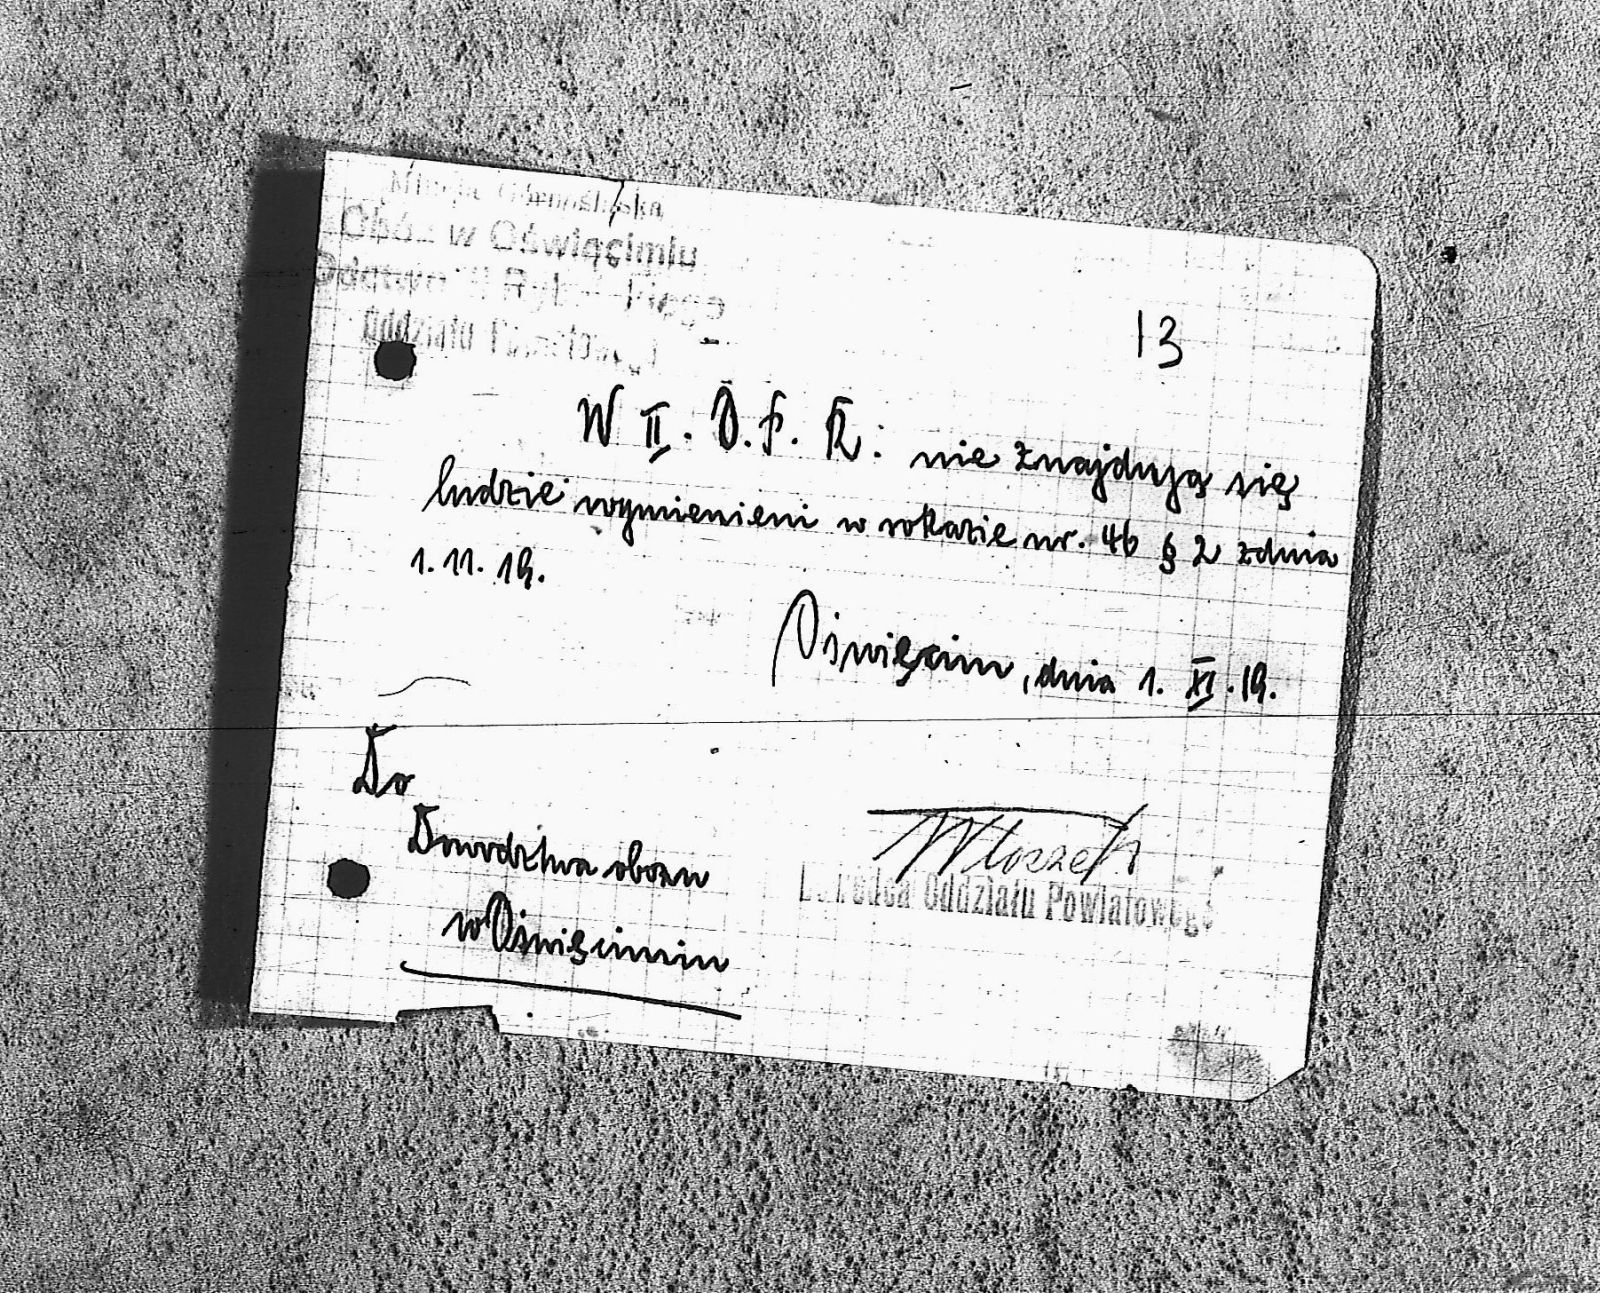 Obóz w Oświęcimiu
Oddziału
13
W II. O. P. R. nie znajdują się
ludzie wymienieni w rokazie nr. 46 § 2 z dnia
1. 11. 19.
Oświęcim, dnia 1. XI. 19.
Do
Dowodztwa obozu
w Oświęcimiu
Oddziału Powiatowego